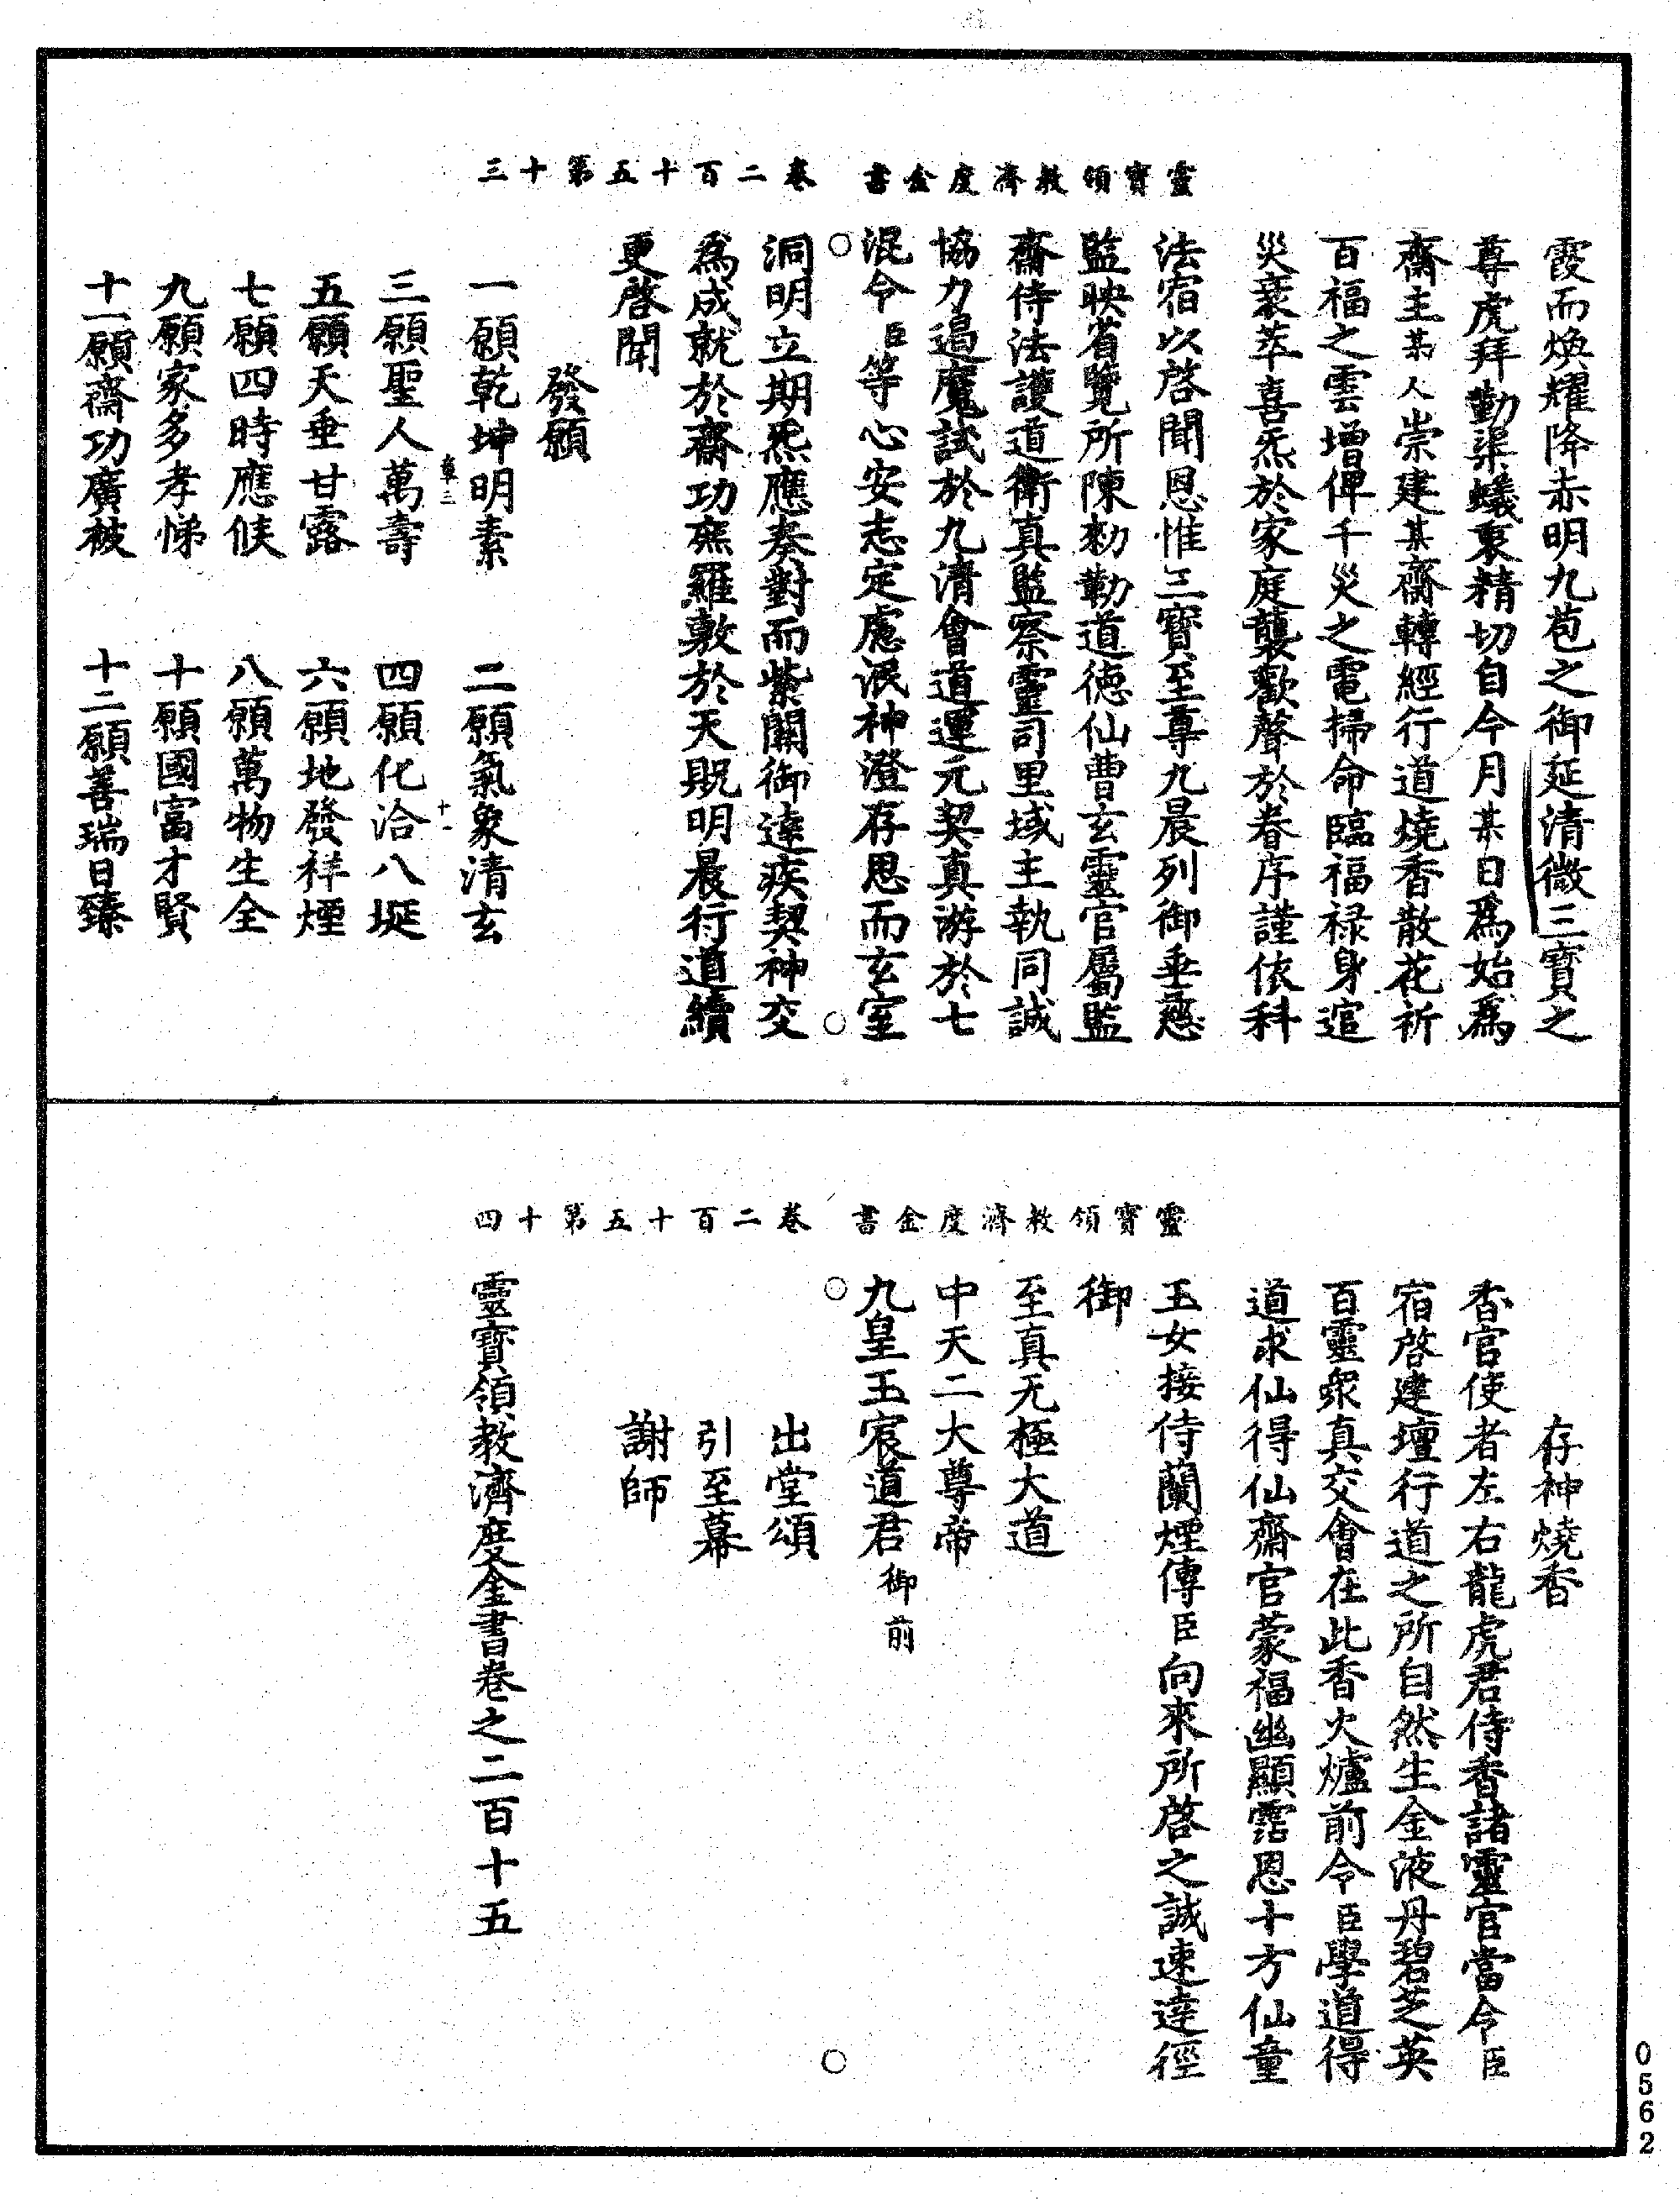 靈寶領教濟度金書　卷二百十五第十三
霞而煥耀降赤明九苞之御延清微三寶之
尊虎拜勤渠蟻衷精切自今月某日為始為
齋主某人崇建某齋轉經行道燒香散花祈
百福之雲增俾千災之電掃命臨福祿身逭
災衰萃喜炁於家庭襲歡聲於眷序謹依科
法宿以啓聞恩惟三寶至尊九晨列御垂慈
監映省覽所陳勑勒道德仙曹玄靈官屬監
齋侍法護道衛真監察靈司里域主執同誠
協力遏魔試於九清會道運元契真游於七
混令臣等心安志定慮泯神澄存思而玄室
洞明立期炁應奏對而紫闕御達疾契神交
為成就於齋功庶羅敷於天貺明晨行道續
更啓聞
發願
一願乾坤明素　二願氣象清玄
三願聖人萬壽　四願化洽八埏
五願天垂甘露　六願地發祥煙
七願四時應候　八願萬物生全
九願家多孝悌　十願國富才賢
十一願齋功廣被　十二願善瑞日臻
十一
靈寶領教濟度金書　卷二百十五第十四
存神燒香
香官使者左右龍虎君侍香諸靈官當令臣
宿啓建壇行道之所自然生金液丹碧芝英
百靈眾真交會在此香火爐前令臣學道得
道求仙得仙齋官蒙福幽顯霑恩十方仙童
玉女接侍蘭煙傳臣向來所啓之誠速達徑
御
至真无極大道
中天二大尊帝
九皇玉宸道君御前
出堂頌
引至幕
謝師
靈寶領教濟度金書卷之二百十五
0562